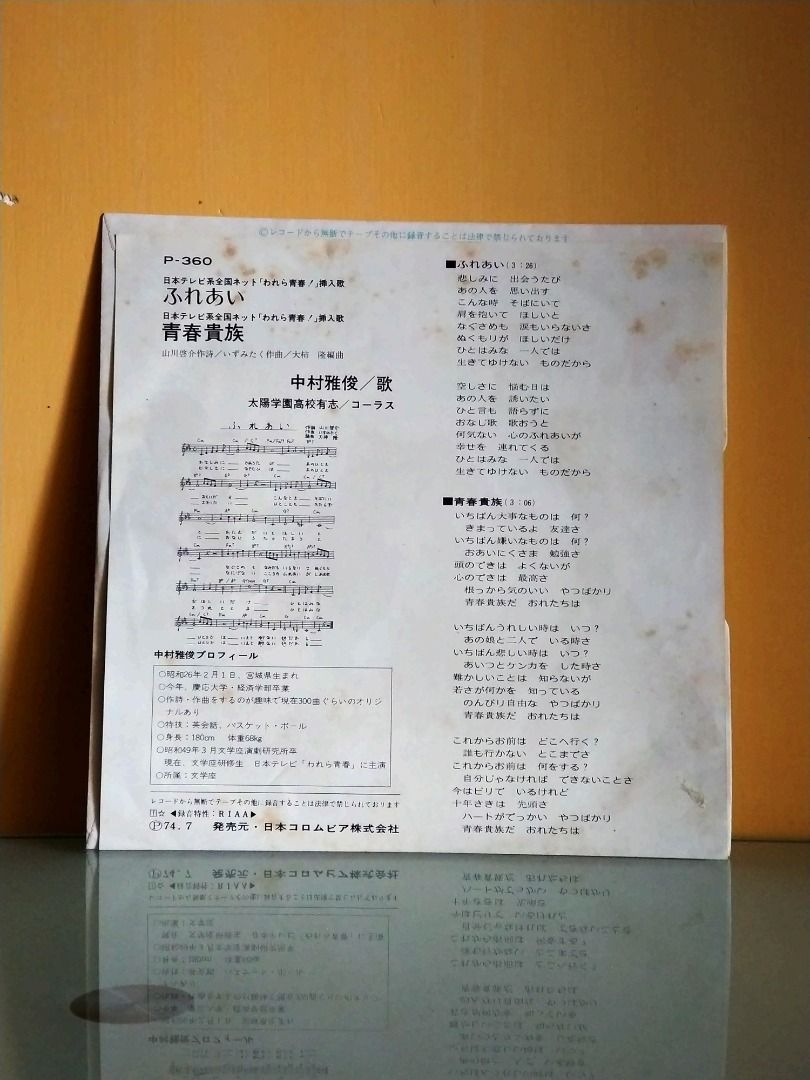 Ⓒレコードから無断でテープその他に録音することは法律で禁じられております
P-360
日本テレビ系全国ネット「われら青春!」挿入歌
ふれあい
日本テレビ系全国ネット「われら青春!」挿入歌
青春貴族
山川啓介作詩/いずみたく作曲/大柿 隆編曲
中村雅俊/歌
太陽学園高校有志/コーラス
ふれあい
中村雅俊プロフィール
○昭和26年2月1日、宮城県生まれ
○今年、慶応大学・経済学部卒業
○作詩・作曲をするのが趣味で現在300曲ぐらいのオリジ
ナルあり
○特技:英会話、バスケット・ボール
○身長:180cm 体重68kg
○昭和49年3月文学座演劇研究所卒
現在、文学座研修生 日本テレビ「われら青春」に主演
○所属:文学座
レコードから無断でテープその他に録音することは法律で禁じられております
◀録音特性:RIAA▶
Ⓟ74.7 発売元・日本コロムビア株式会社
■ふれあい(3:26)
悲しみに 出会うたび
あの人を 思い出す
こんな時 そばにいて
肩を抱いて ほしいと
なぐさめも 涙もいらないさ
ぬくもりが ほしいだけ
ひとはみな 一人では
生きてゆけない ものだから
空しさに 悩む日は
あの人を 誘いたい
ひと言も 語らずに
おなじ歌 歌おうと
何気ない 心のふれあいが
幸せを 連れてくる
ひとはみな 一人では
生きてゆけない ものだから
■青春貴族(3:06)
いちばん大事なものは 何?
きまっているよ 友達さ
いちばん嫌いなものは 何?
おあいにくさま 勉強さ
頭のできは よくないが
心のできは 最高さ
根っから気のいい やつばかり
青春貴族だ おれたちは
いちばんうれしい時は いつ?
あの娘と二人で いる時さ
いちばん悲しい時は いつ?
あいつとケンカを した時さ
難かしいことは 知らないが
若さが何かを 知っている
のんびり自由な やつばかり
青春貴族だ おれたちは
これからお前は どこへ行く?
誰も行かない とこまでさ
これからお前は 何をする?
自分じゃなければ できないことさ
今はビリで いるけれど
十年さきは 先頭さ
ハートがでっかい やつばかり
青春貴族だ おれたちは